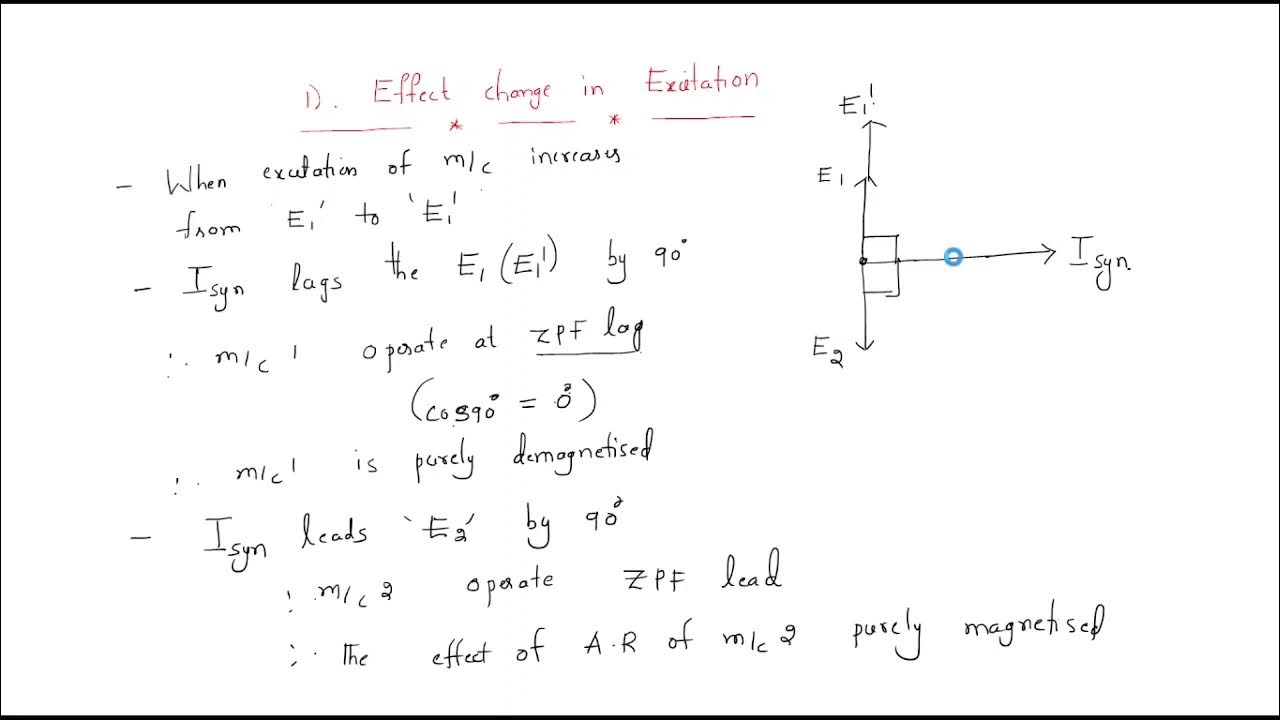 1). Effect change in Excitation
- When excitation of m/c increases
from 'E₁' to 'E₁'
- Isyn lags the E₁ (E₁') by 90°
∴ m/c 1 operate at ZPF lag
(cos90° = 0°)
∴ m/c 1 is purely demagnetised
- Isyn leads 'E₂' by 90°
∴ m/c 2 operate ZPF lead
∴ The effect of A.R of m/c 2 purely magnetised
E₁'
E₁
Isyn
E₂